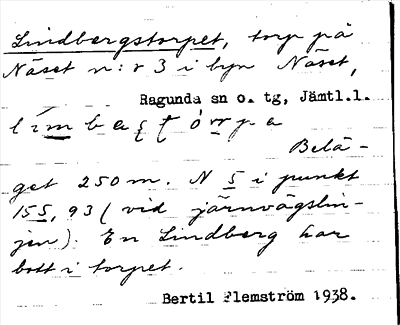 Lindbergstorpet, torp på
Näset n:r 3 i byn Näset,
Ragunda sn o. tg, Jämtl.l.
Belä-
get 250 m. N 5 i punkt
155, 93 (vid järnvägslin-
jen). En Lindberg har
bott i torpet.
Bertil Flemström 1938.